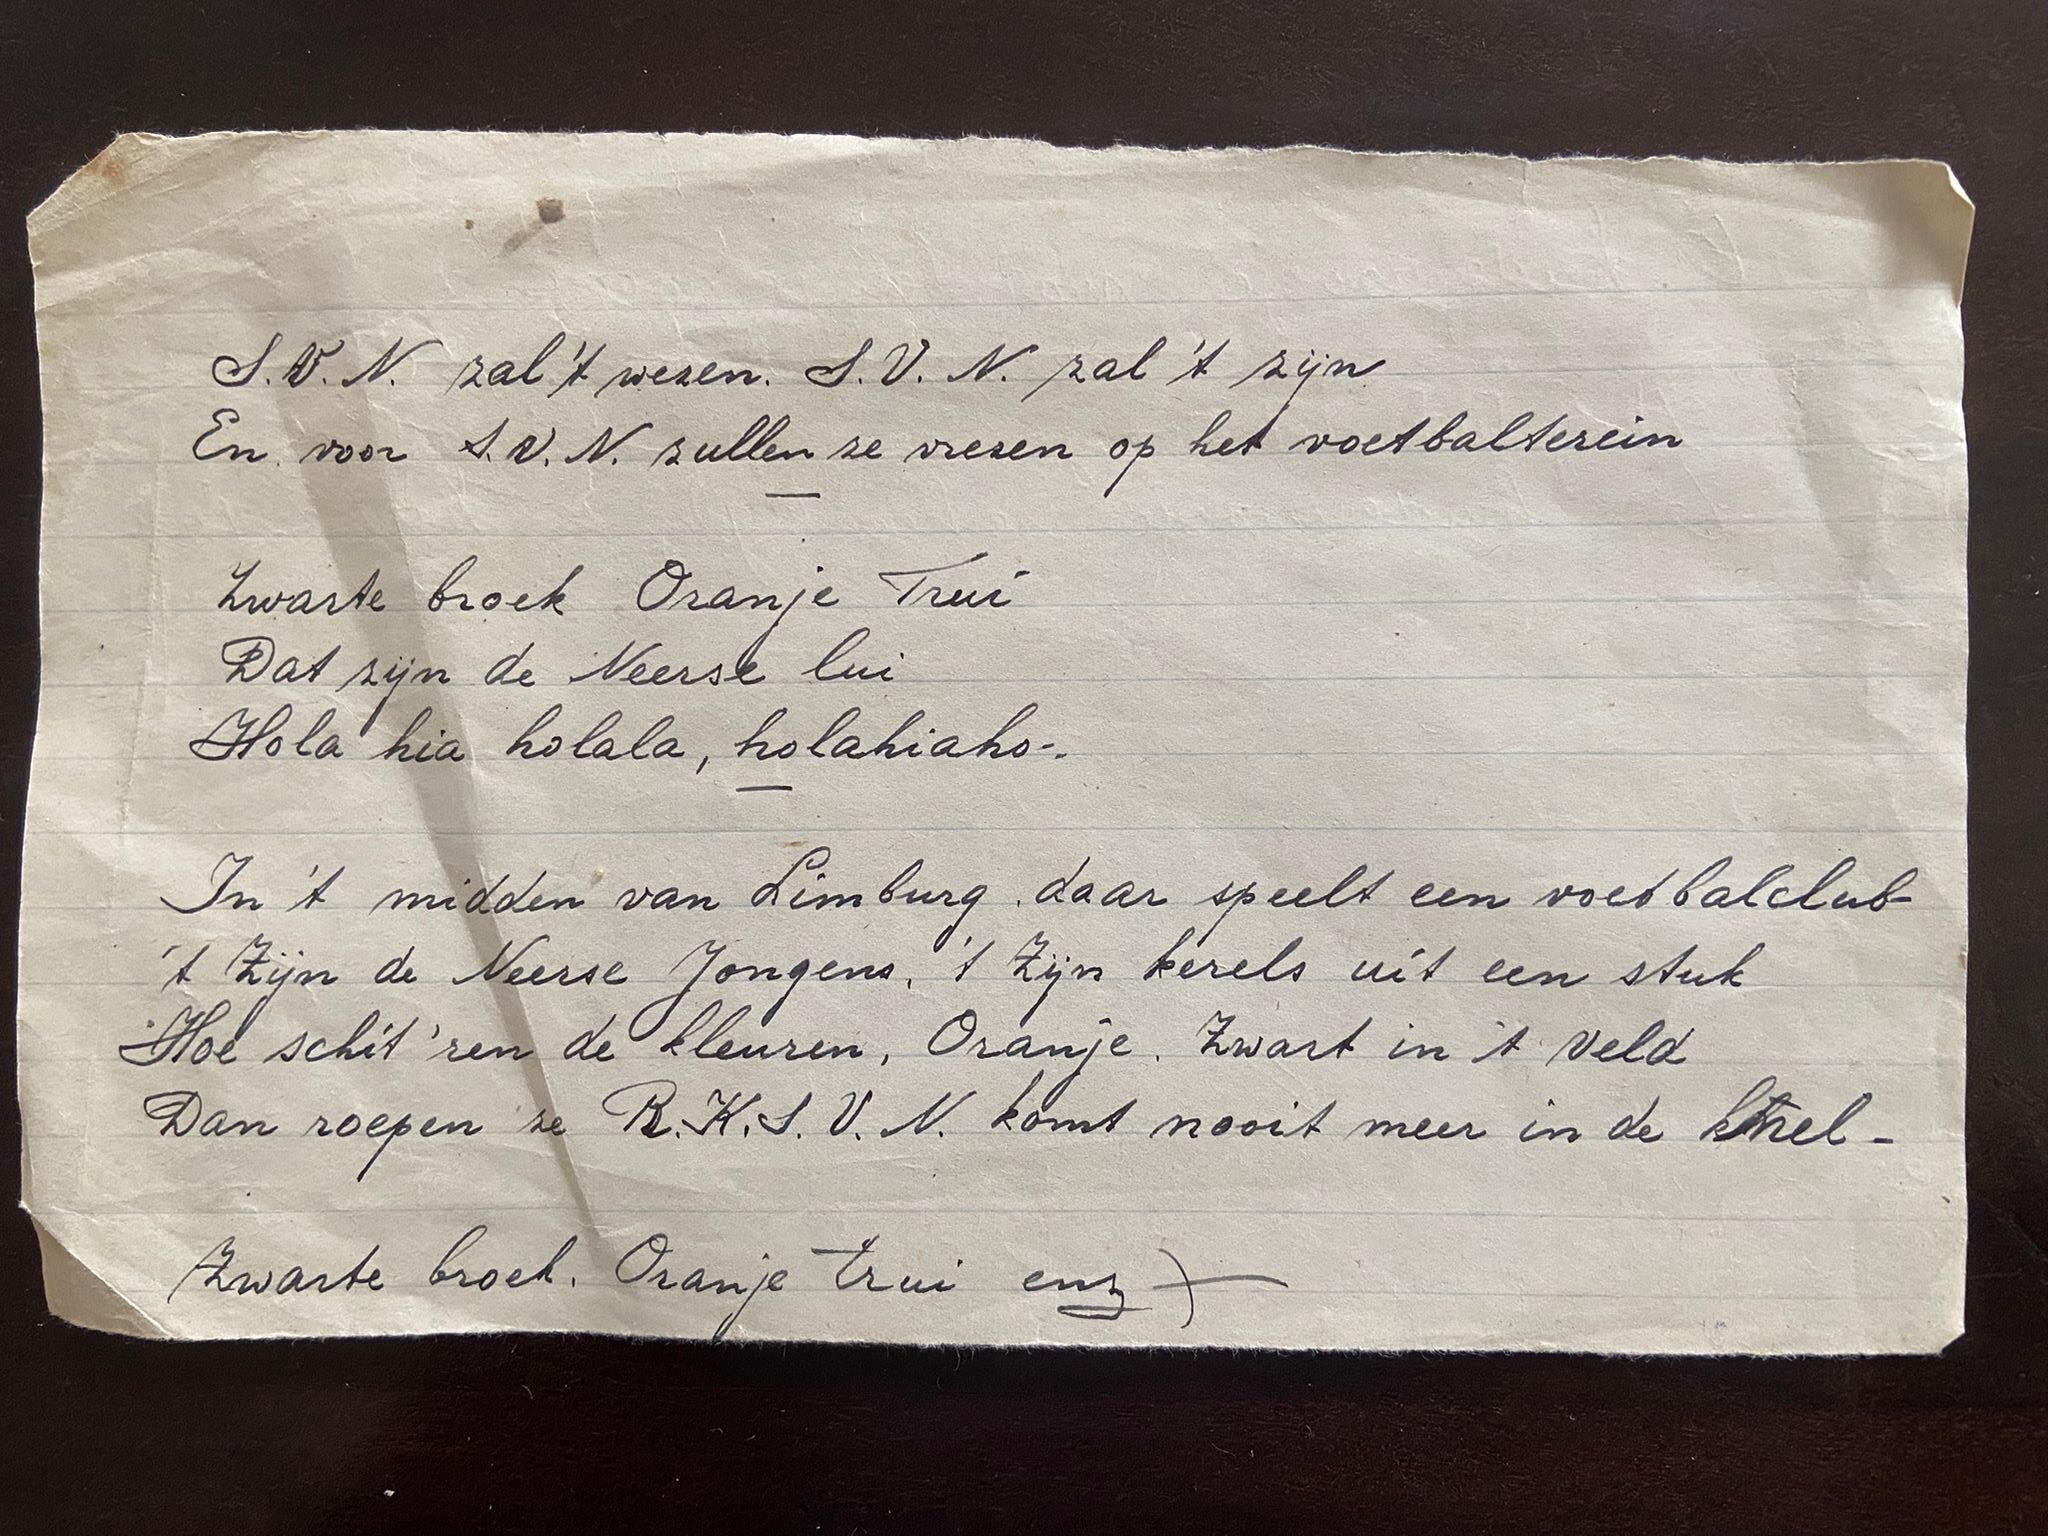 S.V.N. zal't wezen. S.V.N. zal't zijn
En voor S.V.N. zullen ze vrezen op het voetbalterein
Zwarte broek Oranje Trui
Dat zijn de Neerse lui
Hola hia holala, holahiaho-.
In 't midden van Limburg daar speelt een voetbalclub-
't Zijn de Neerse Jongens, 't Zijn kerels uit een stuk
Hoe schit'ren de kleuren, Oranje. Zwart in 't veld
Dan roepen ze R.K.S.V.N. komt nooit meer in de
Zwarte broek. Oranje trui enz